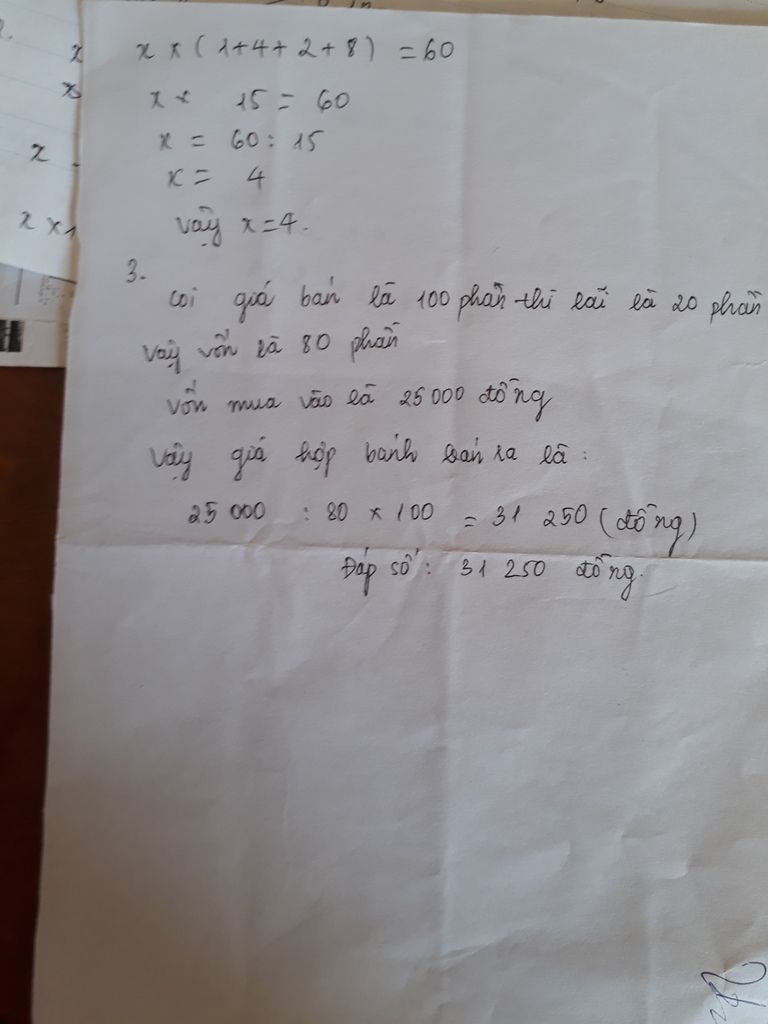 x
x
x
x x 1
x x ( 1+4+2+8 ) = 60
x x 15 = 60
x = 60 : 15
x = 4
vậy x = 4.
3.
coi giá bán là 100 phần thì lãi là 20 phần
vậy vốn là 80 phần
vốn mua vào là 25 000 đồng
Vậy giá hộp bánh bán ra là :
25 000 : 80 x 100 = 31 250 ( đồng )
Đáp số : 31 250 đồng.